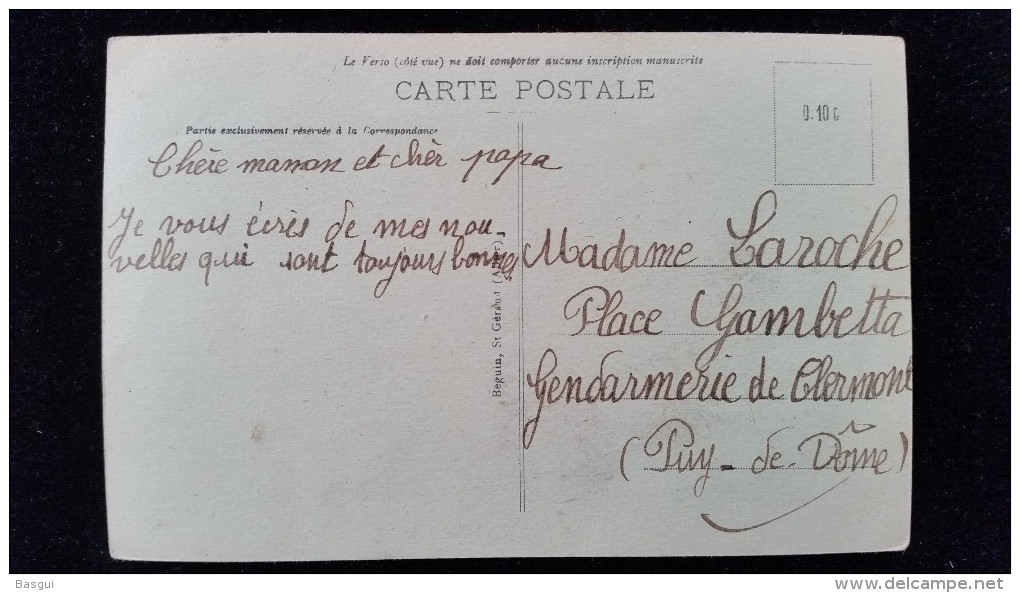 Le Verso (côté vue) ne doit comporter aucune inscription manuscrite
CARTE POSTALE
0.10 c
Partie exclusivement réservée à la Correspondance
Chère maman et chèr papa
Je vous écris de mes nou-
velles qui sont toujours bonnes
Béguin, St Gérand
Madame Laroche
Place Gambetta
Gendarmerie de Clermont
(Puy-de-Dôme)
Basgui
www.delcampe.net